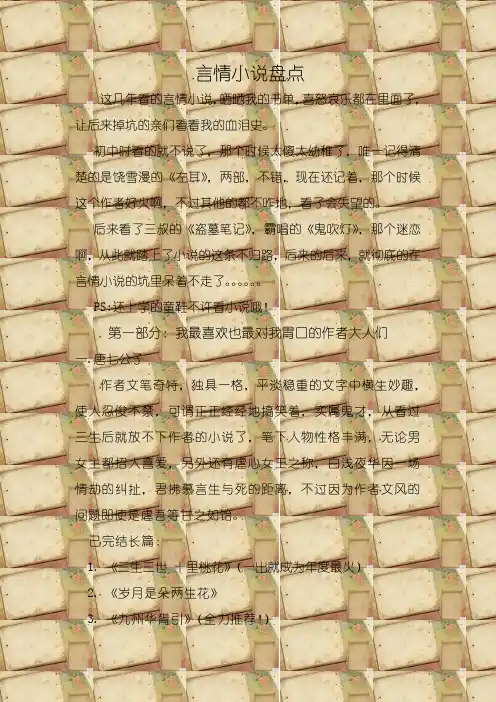 言情小说盘点
这几年看的言情小说,晒晒我的书单,喜怒哀乐都在里面了,
让后来掉坑的亲们看看我的血泪史。
初中时看的就不说了,那个时候太傻太幼稚了,唯一记得清
楚的是饶雪漫的《左耳》,两部,不错,现在还记着,那个时候
这个作者好火啊,不过其他的都不咋地,看了会失望的。
后来看了三叔的《盗墓笔记》,霸唱的《鬼吹灯》,那个迷恋
啊,从此就踏上了小说的这条不归路,后来的后来,就彻底的在
言情小说的坑里呆着不走了。。。。。。
PS:还上学的童鞋不许看小说哦!
第一部分:我最喜欢也最对我胃口的作者大人们
一.唐七公子
作者文笔奇特,独具一格,平淡稳重的文字中横生妙趣,
使人忍俊不禁,可谓正正经经地搞笑着,实属鬼才,从看过
三生后就放不下作者的小说了,笔下人物性格丰满,无论男
女主都招人喜爱,另外还有虐心女王之称,白浅夜华因一场
情劫的纠扯,君拂慕言生与死的距离,不过因为作者文风的
问题即使是虐吾等甘之如饴。
已完结长篇:
1. 《三生三世 十里桃花》(一出就成为年度最火)
2. 《岁月是朵两生花》
3. 《九州华胥引》(全力推荐!)